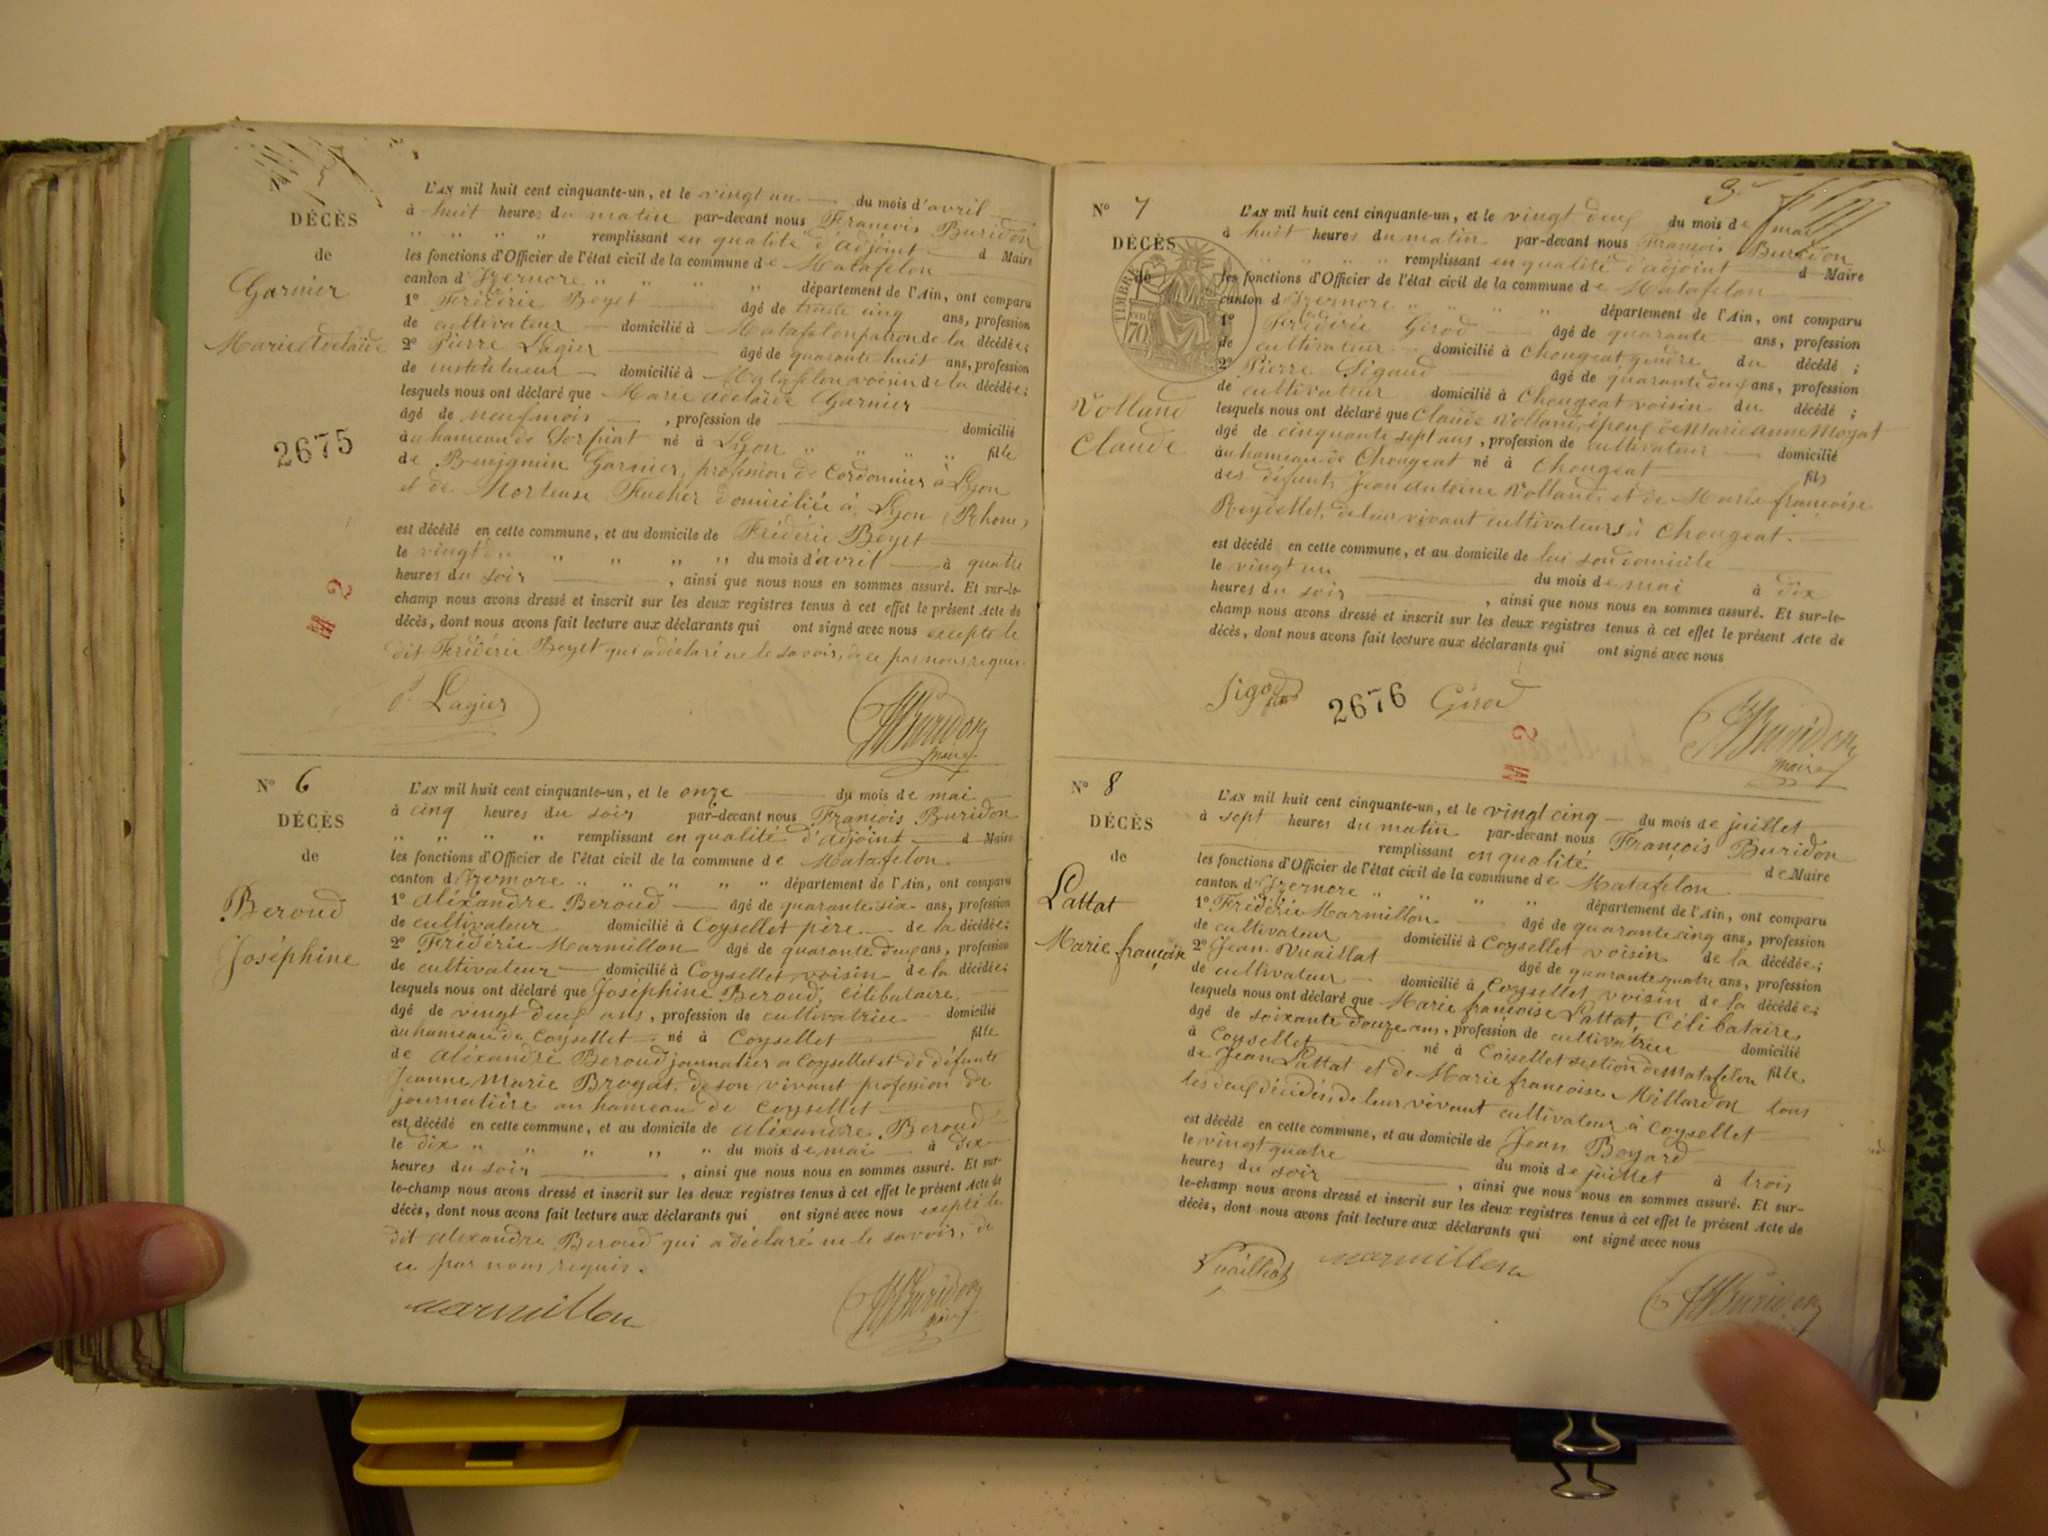 DÉCÈS
de
Garnier
Marie Adelaïde
2675
M 2
L'AN mil huit cent cinquante-un, et le vingt un du mois d'avril
à huit heures du matin par-devant nous François Buridon
" " " " remplissant en qualité d'adjoint d Maire
les fonctions d'Officier de l'état civil de la commune de Matafelon
canton d'Izernore " " " " département de l'Ain, ont comparu
1° Frédéric Beyet âgé de trente cinq ans, profession
de cultivateur domicilié à Matafelon patron de la décédée;
2° Pierre Lagier âgé de quarante huit ans, profession
de instituteur domicilié à Matafelon voisin de la décédée;
lesquels nous ont déclaré que Marie adelaïde Garnier
âgé de neuf mois , profession de domicilié
à au hameau de Serpiat né à Lyon " " " " fille
de Benjamin Garnier, profession de Cordonnier à Lyon
et de Hortense domiciliée à Lyon (Rhone)
est décédé en cette commune, et au domicile de Frédéric Beyet
le vingt " " " " du mois d'avril à quatre
heures du soir , ainsi que nous nous en sommes assuré. Et sur-le-
champ nous avons dressé et inscrit sur les deux registres tenus à cet effet le présent Acte de
décès, dont nous avons fait lecture aux déclarants qui ont signé avec nous excepté le
dit Frédéric Beyet qui a déclaré ne le savoir, de ce par nous requis.
P. Lagier
Buridon
maire
N° 6
DÉCÈS
de
Beroud
Joséphine
L'AN mil huit cent cinquante-un, et le onze du mois de mai
à cinq heures du soir par-devant nous François Buridon
" " " " remplissant en qualité d'adjoint d Maire
les fonctions d'Officier de l'état civil de la commune de Matafelon
canton d'Izernore " " " " " département de l'Ain, ont comparu
1° Aléxandre Beroud âgé de quarante six ans, profession
de cultivateur domicilié à Coysellet père de la décédée;
2° Frédéric Marmillon âgé de quarante deux ans, profession
de cultivateur domicilié à Coysellet voisin de la décédée;
lesquels nous ont déclaré que Joséphine Beroud, célibataire
âgé de vingt deux ans, profession de cultivatrice domicilié
à au hameau de Coysellet né à Coysellet fille
de Aléxandre Beroud journalier a Coysellet et de défunte
Jeanne Marie Broyat, de son vivant profession de
journalière au hameau de Coysellet
est décédé en cette commune, et au domicile de Aléxandre Beroud
le dix " " " " " du mois de mai à dix
heures du soir , ainsi que nous nous en sommes assuré. Et sur-
le-champ nous avons dressé et inscrit sur les deux registres tenus à cet effet le présent Acte de
décès, dont nous avons fait lecture aux déclarants qui ont signé avec nous excepté le
dit Alexandre Beroud qui a déclaré ne le savoir, de
ce par nous requis.
Marmillon
Buridon
maire
N° 7
DÉCÈS
de
TIMBRE
70
Volland
Claude
L'AN mil huit cent cinquante-un, et le vingt deux du mois de mai
à huit heures du matin par-devant nous François Buridon
" " " " remplissant en qualité d'adjoint d Maire
les fonctions d'Officier de l'état civil de la commune de Matafelon
canton d'Izernore " " " " département de l'Ain, ont comparu
1° Frédéric Girod âgé de quarante ans, profession
de cultivateur domicilié à Chougeat gendre du décédé ;
2° Pierre Sigaud âgé de quarante deux ans, profession
de cultivateur domicilié à Chougeat voisin du décédé ;
lesquels nous ont déclaré que Claude Volland, époux de Marie anne Moyat
âgé de cinquante sept ans, profession de cultivateur domicilié
à au hameau de Chougeat né à Chougeat fils
des défunts Jean Antoine Volland et de Marie françoise
Reydellet, de leur vivant cultivateurs à Chougeat.
est décédé en cette commune, et au domicile de lui son domicile
le vingt un du mois de mai à dix
heures du soir , ainsi que nous nous en sommes assuré. Et sur-le-
champ nous avons dressé et inscrit sur les deux registres tenus à cet effet le présent Acte de
décès, dont nous avons fait lecture aux déclarants qui ont signé avec nous
2676 Girod
M 2
Buridon
maire
N° 8
DÉCÈS
de
Lattat
Marie françoise
L'AN mil huit cent cinquante-un, et le vingt cinq du mois de juillet
à sept heures du matin par-devant nous François Buridon
remplissant en qualité de Maire
les fonctions d'Officier de l'état civil de la commune de Matafelon
canton d'Izernore " " " " département de l'Ain, ont comparu
1° Frédéric Marmillon âgé de quarante cinq ans, profession
de cultivateur domicilié à Coysellet voisin de la décédée;
2° Jean Vuaillat âgé de quarante quatre ans, profession
de cultivateur domicilié à Coysellet voisin de la décédée;
lesquels nous ont déclaré que Marie françoise Lattat, célibataire
âgé de soixante douze ans, profession de cultivatrice domicilié
à Coysellet né à Coisellet section de Matafelon fille
de Jean Lattat et de Marie françoise Millardon tous
les deux décédés, de leur vivant cultivateur à Coysellet
est décédé en cette commune, et au domicile de Jean Boyard
le vingt quatre du mois de juillet à trois
heures du soir , ainsi que nous nous en sommes assuré. Et sur-
le-champ nous avons dressé et inscrit sur les deux registres tenus à cet effet le présent Acte de
décès, dont nous avons fait lecture aux déclarants qui ont signé avec nous
Vuailliat Marmillon
Buridon